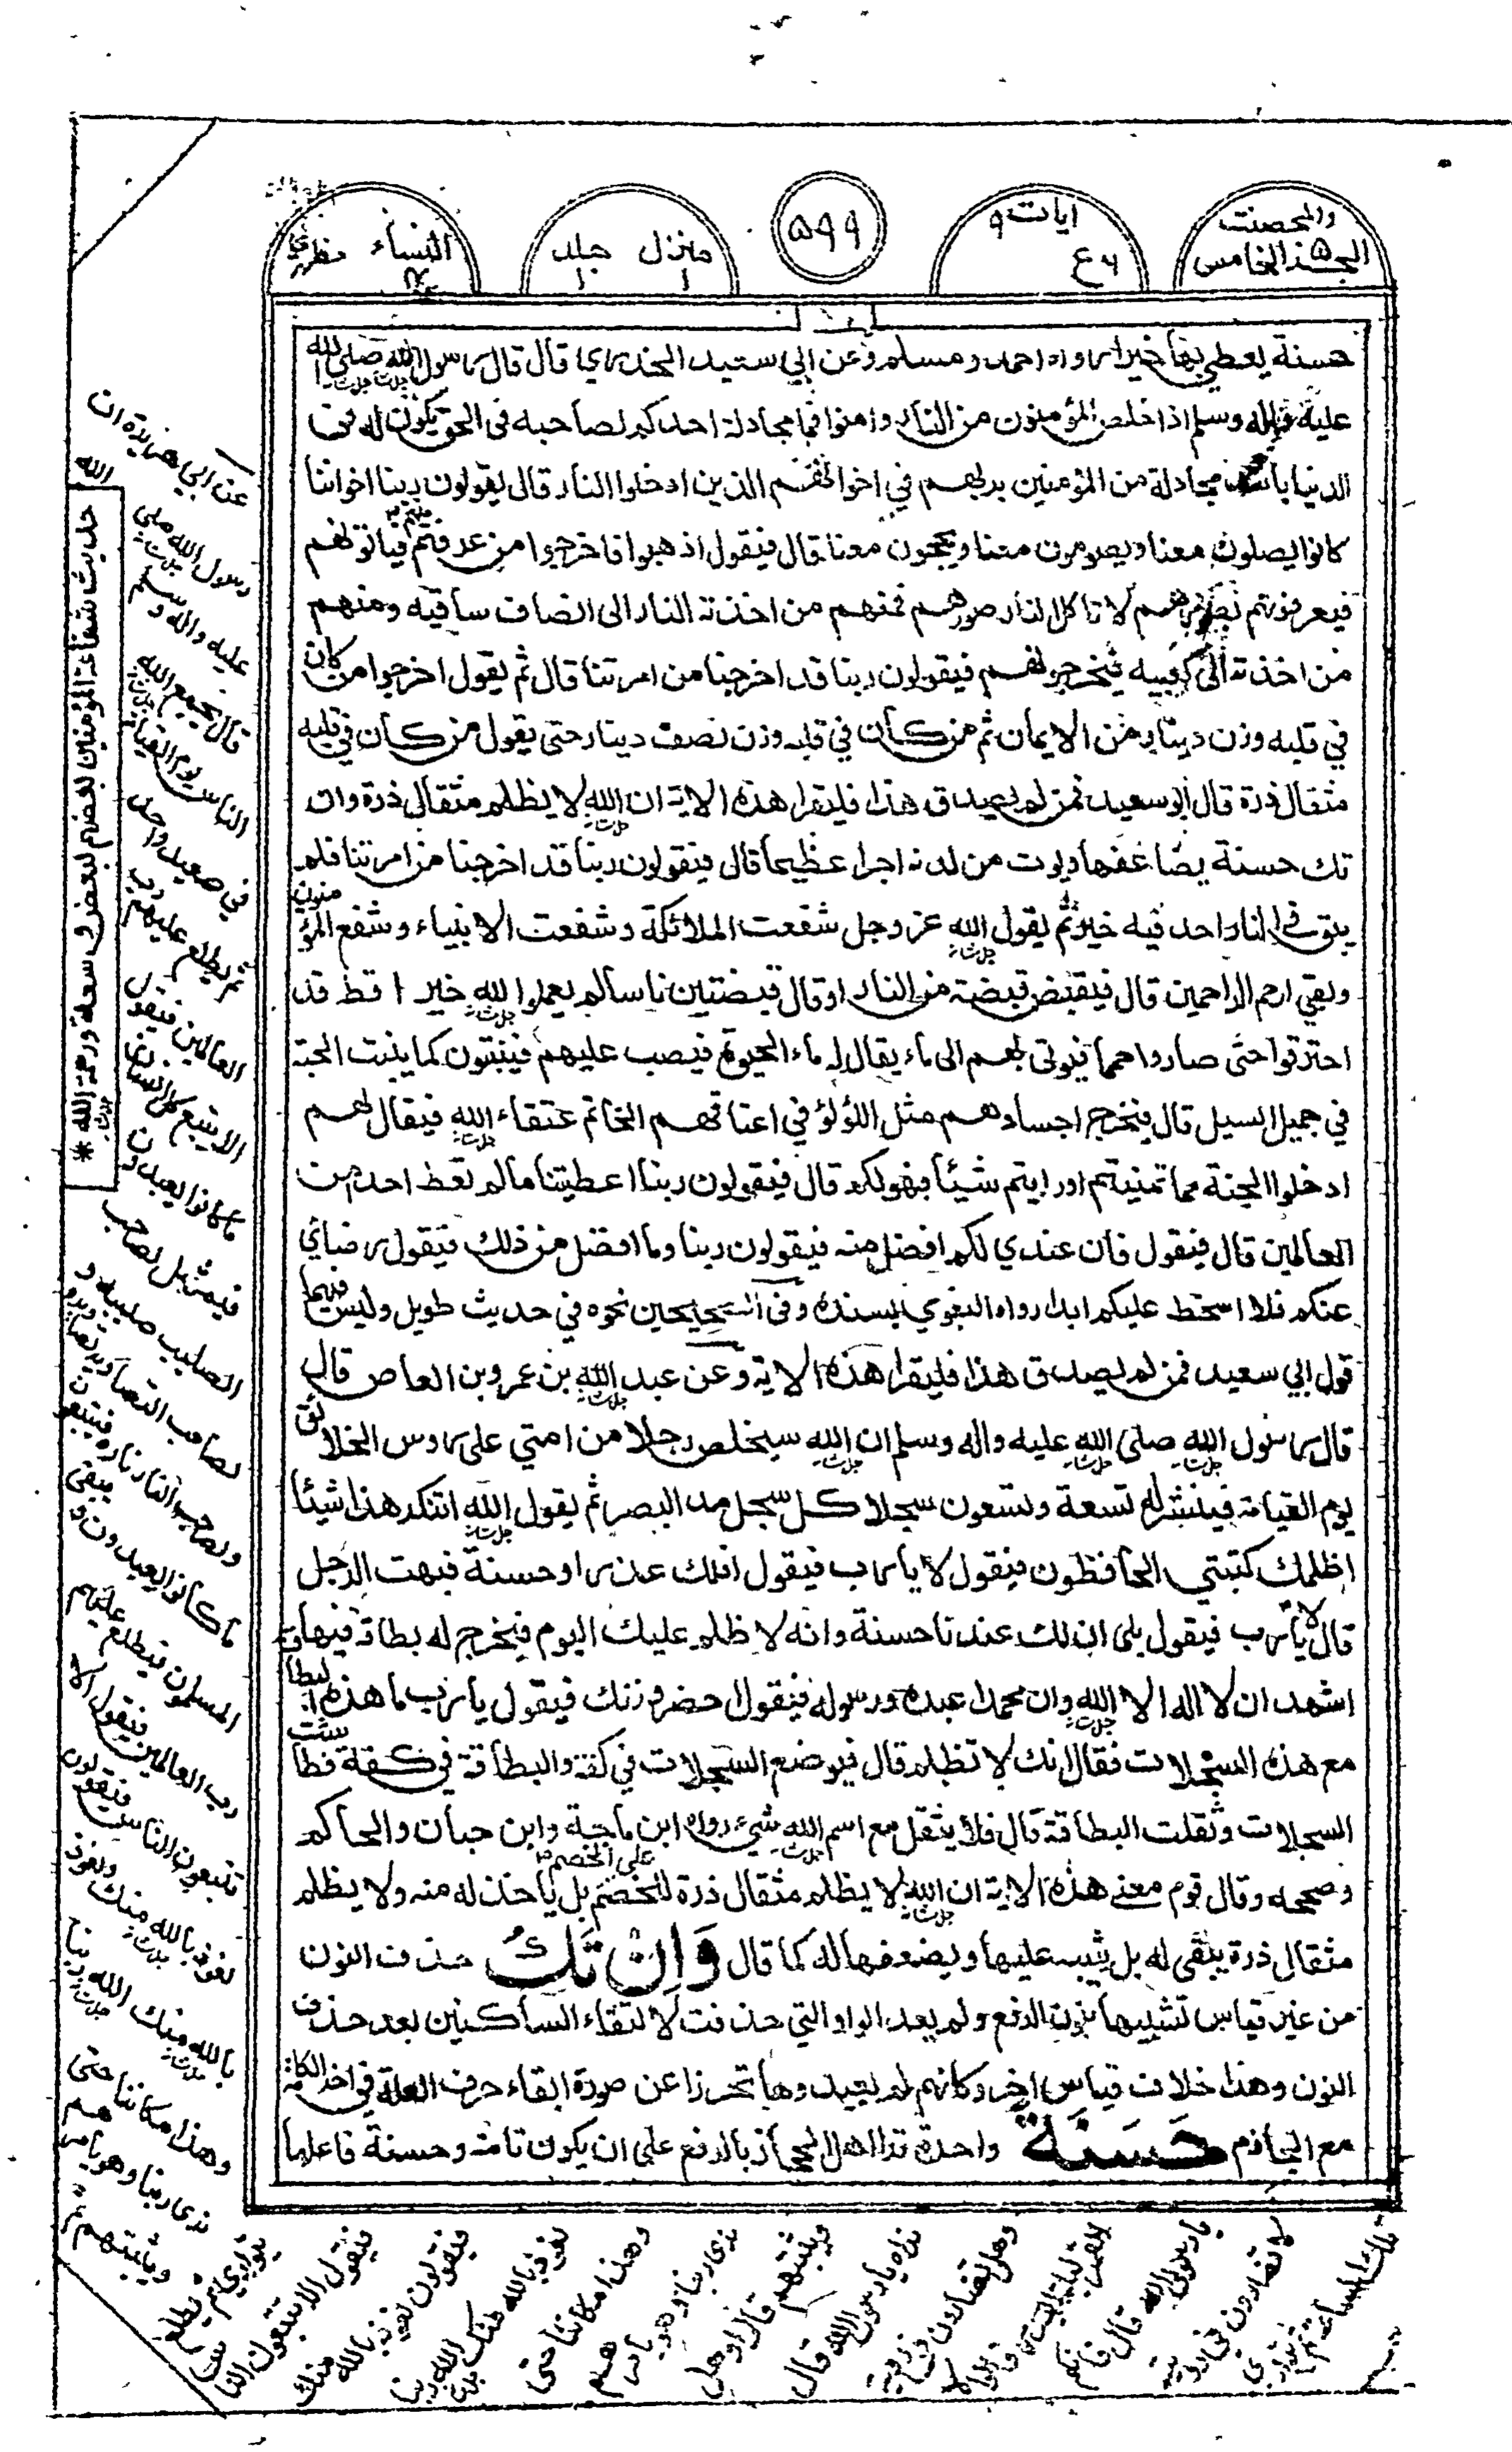 والمحصنت
الجزء الخامس ۵
ايات ۹
ع ۶
۵۹۹
منزل جلد
۱ ۱
النساء مظهری
۴
حسنة يعطي بها خيرا رواه احمد ومسلم وعن ابي سعيد الخدري قال قال رسول الله صلى الله
عليه واله وسلم اذا خلص المؤمنون من النار وامنوا فما مجادلة احدكم لصاحبه في الحق يكون له فى
الدنيا باشد مجادلة من المؤمنين بربهم في اخوانهم الذين ادخلوا النار قال يقولون ربنا اخواننا
كانوا يصلون معنا ويصومون معنا ويحجون معنا قال فيقول اذهبوا فاخرجوا من عرفتم فياتونهم
فيعرفونهم بصورهم لا تاكل النار صورهم فمنهم من اخذته النار الى انصاف ساقيه ومنهم
من اخذته الى كعبيه فيخرجونهم فيقولون ربنا قد اخرجنا من امرتنا قال ثم يقول اخرجوا من كان
في قلبه وزن دينار من الايمان ثم من كان في قلبه وزن نصف دينار حتى يقول من كان في قلبه
مثقال ذرة قال ابو سعيد فمن لم يصدق هذا فليقرا هذه الاية ان الله لا يظلم مثقال ذرة وان
تك حسنة يضاعفها ويوت من لدنه اجرا عظيما قال فيقولون ربنا قد اخرجنا من امرتنا فلم
يبق في النار احد فيه خير ثم يقول الله عز وجل شفعت الملائكة وشفعت الانبياء وشفع المؤمنون
وبقي ارحم الراحمين قال فيقبض قبضة من النار او قال قبضتين ناسا لم يعملوا لله خيرا قط قد
احترقوا حتى صاروا حمما فيوتى بهم الى ماء يقال له ماء الحيوة فيصب عليهم فينبتون كما ينبت الحبة
في حميل السيل قال فيخرج اجسادهم مثل اللؤلؤ في اعناقهم الخاتم عتقاء الله فيقال لهم
ادخلوا الجنة مما تمنيتم او رايتم شيئا فهو لكم قال فيقولون ربنا اعطيتنا ما لم تعط احدا من
العالمين قال فيقول فان عندي لكم افضل منه فيقولون ربنا وما افضل من ذلك فيقول رضائي
عنكم فلا اسخط عليكم ابدا رواه البغوي بسنده وفى الصحيحين نحوه في حديث طويل وليس فيهما
قول ابي سعيد فمن لم يصدق هذا فليقرا هذه الاية وعن عبد الله بن عمرو بن العاص قال
قال رسول الله صلى الله عليه واله وسلم ان الله سيخلص رجلا من امتي على رؤس الخلائق
يوم القيامة فينشر له تسعة وتسعون سجلا كل سجل مد البصر ثم يقول الله اتنكر هذا شيئا
اظلمك كتبتي الحافظون فيقول لا يا رب فيقول افلك عذر او حسنة فبهت الرجل
قال لا يا رب فيقول بلى ان لك عندنا حسنة وانه لا ظلم عليك اليوم فيخرج له بطاقة فيها
اشهد ان لا اله الا الله وان محمدا عبده ورسوله فيقول احضر وزنك فيقول يا رب ما هذه البطاقة
مع هذه السجلات فقال انك لا تظلم قال فيوضع السجلات في كفة والبطاقة في كفة فطاشت
السجلات وثقلت البطاقة قال فلا يثقل مع اسم الله شيء رواه ابن ماجة وابن حبان والحاكم
وصححه وقال قوم معنى هذه الاية ان الله لا يظلم مثقال ذرة للخصم على الخصم بل ياخذ له منه ولا يظلم
مثقال ذرة يبقى له بل يثيبه عليها ويضعفها له كما قال وَاِنْ تَكُ حذف النون
من غير قياس تشبيها بنون الرفع ولم يعد الواو التي حذفت لالتقاء الساكنين بعد حذف
النون وهذا خلاف قياس اخر وكانهم لم يعيدوها تحرزا عن صورة ابقاء حرف العلة في اخر الكلمة
مع الجازم حَسَنَةً واحدة قرا اهل الحجاز بالرفع على ان يكون تامة وحسنة فاعلها
حديث شفاعة المؤمنين بعضهم لبعض وسعة ورحمة الله *
عن ابي هريرة ان
رسول الله صلى الله
عليه واله وسلم
قال يجمع الله
الناس يوم القيامة
في صعيد واحد
ثم يطلع عليهم رب
العالمين فيقول
الا يتبع كل انسان
ما كانوا يعبدون
فيمثل لصاحب
الصليب صليبه و
لصاحب التصاوير تصاويره
ولصاحب النار ناره فيتبعون
ما كانوا يعبدون ويبقى
المسلمون فيطلع عليهم
رب العالمين فيقول الا
تتبعون الناس فيقولون
نعوذ بالله منك ونعوذ
بالله منك الله ربنا
وهذا مكاننا حتى
نرى ربنا وهو يامرهم
ويثبتهم ثم
يتوارى ثم يطلع
فيقول الا تتبعون الناس
فيقولون نعوذ بالله منك
نعوذ بالله منك الله ربنا
وهذا مكاننا حتى
نرى ربنا وهو يامرهم
ويثبتهم قالوا وهل
نراه يا رسول الله قال
وهل تضارون في رؤية
القمر ليلة البدر قالوا لا
يا رسول الله قال فانكم
لا تضارون في رؤيته
تلك الساعة ثم يتوارى